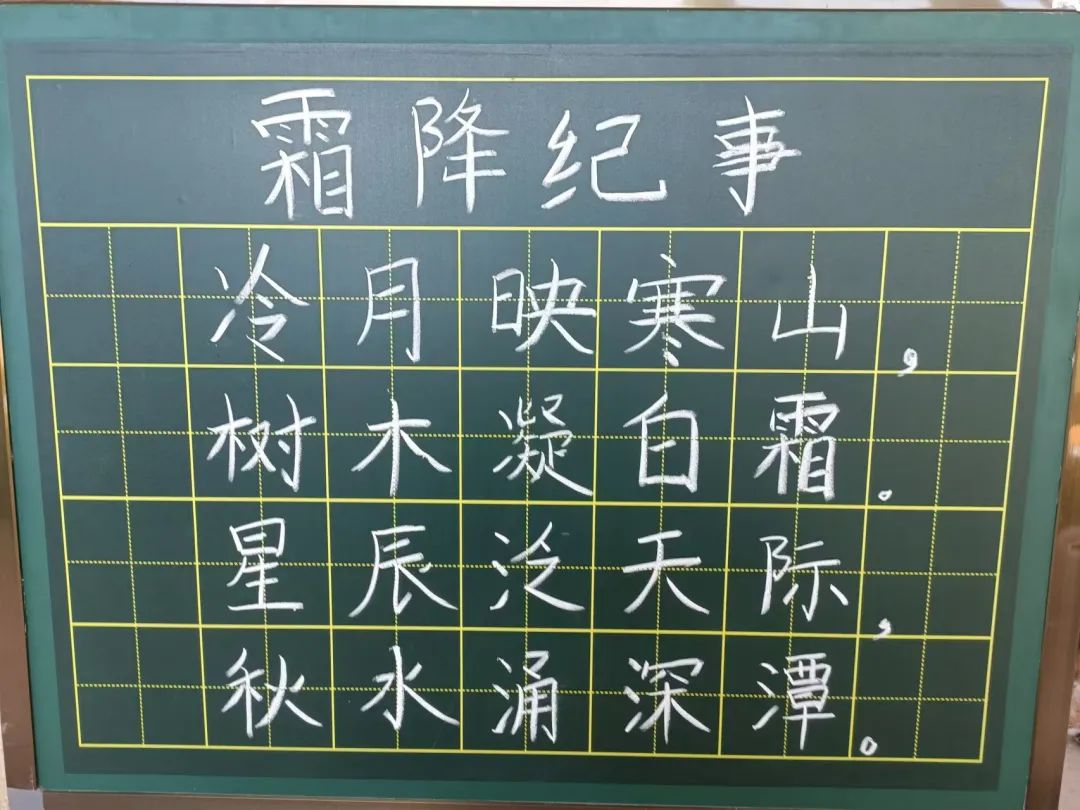 霜降纪事
冷月映寒山，
树木凝白霜。
星辰泛天际，
秋水涌深潭。